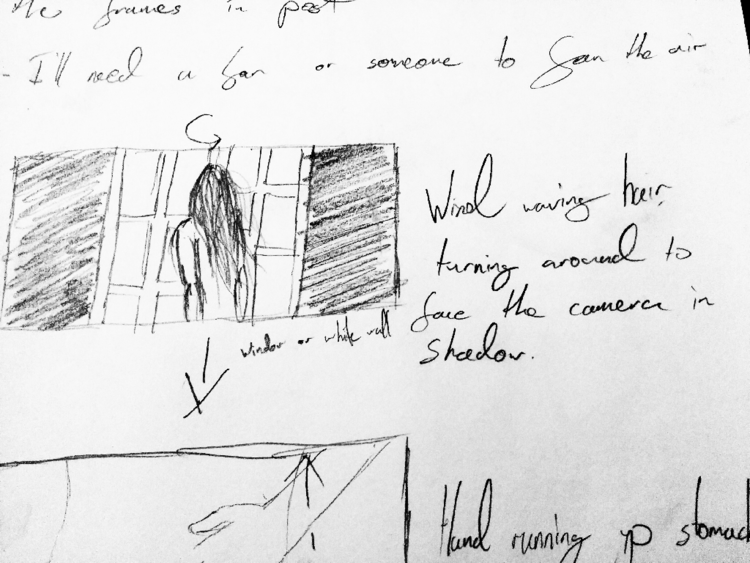 the frames in post
- I'll need a fan or someone to fan the air
Wind waving hair,
turning around to
face the camera in
shadow.
window or white wall
Hand running up stomach